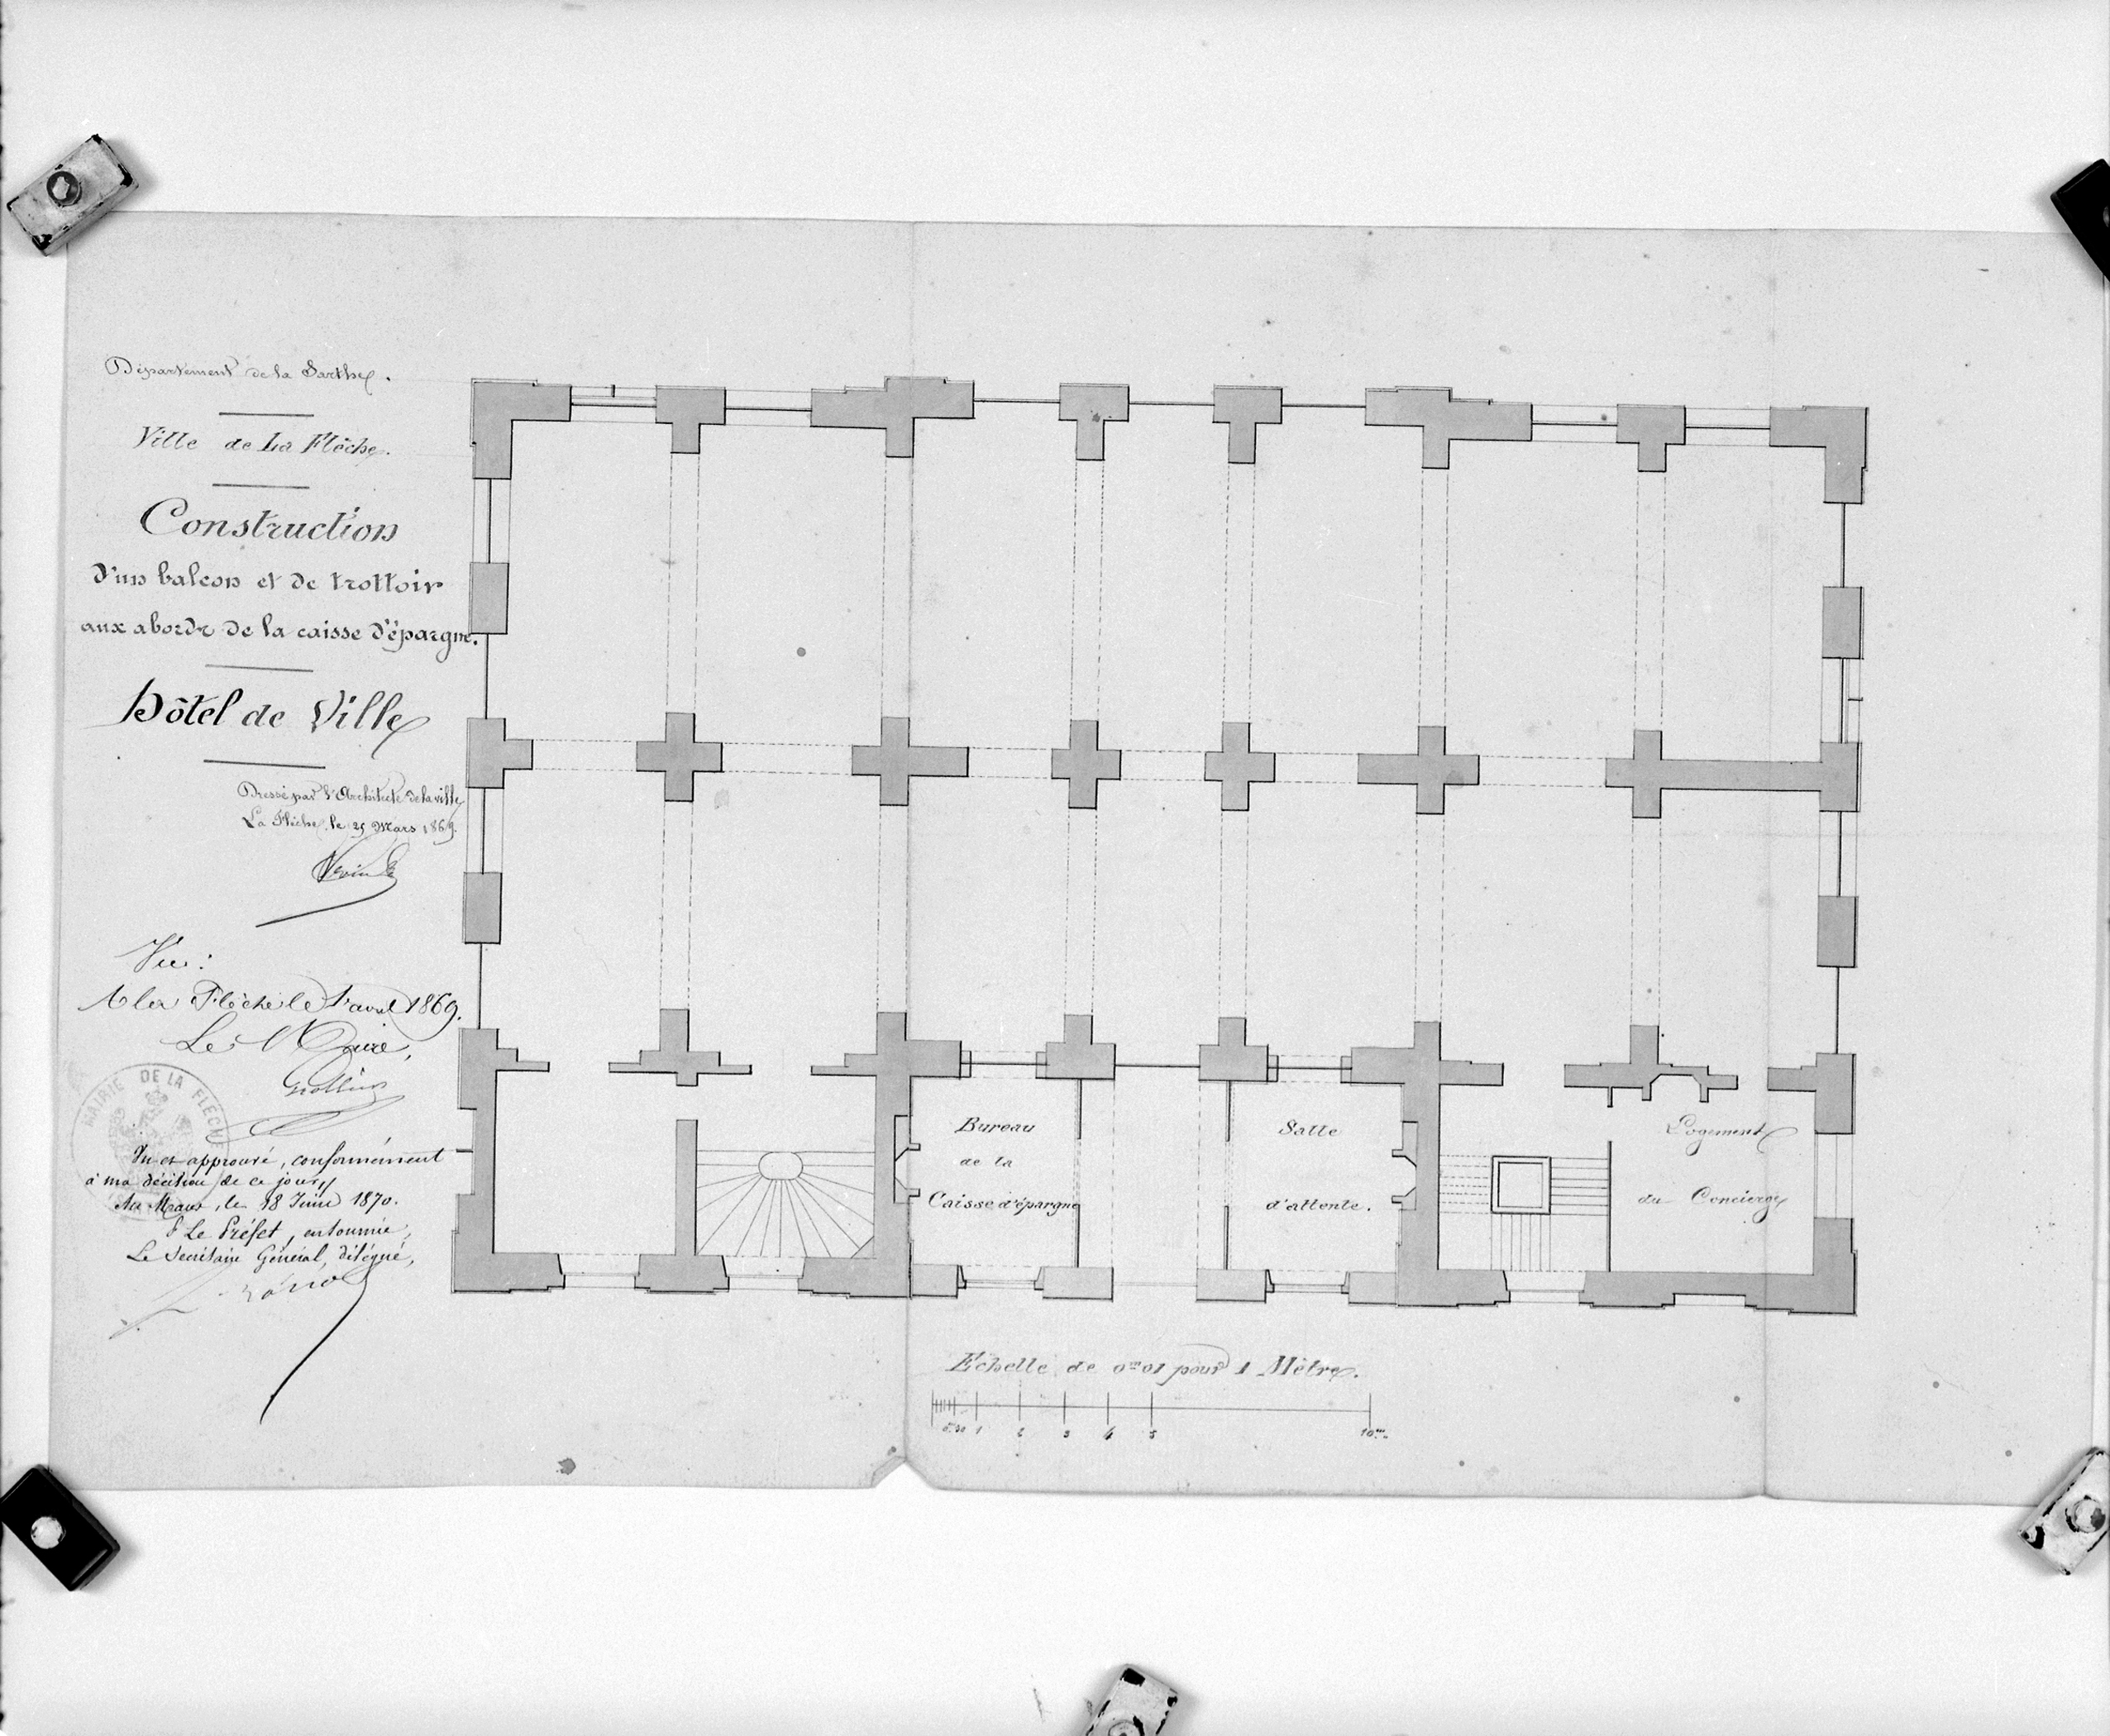 Département de la Sarthe.
Ville de La Flèche.
Construction
d'un balcon et de trottoir
aux abords de la caisse d'épargne.
Hôtel de Ville
Dressé par l'Architecte de la ville
La Flèche, le 25 Mars 1869.
Vu:
A La Flèche le 1er avril 1869.
Le Maire,
MAIRIE DE LA FLÈCHE
Vu et approuvé, conformément
à ma décision de ce jour,
Au Mans, le 18 Juin 1870.
P. Le Préfet, en tournée,
Le Secrétaire Général, délégué,
Bureau
de la
Caisse d'épargne
Salle
d'attente.
Logement
du Concierge
Echelle de 0m01 pour 1 Mètre.
1 2 3 4 5 10m